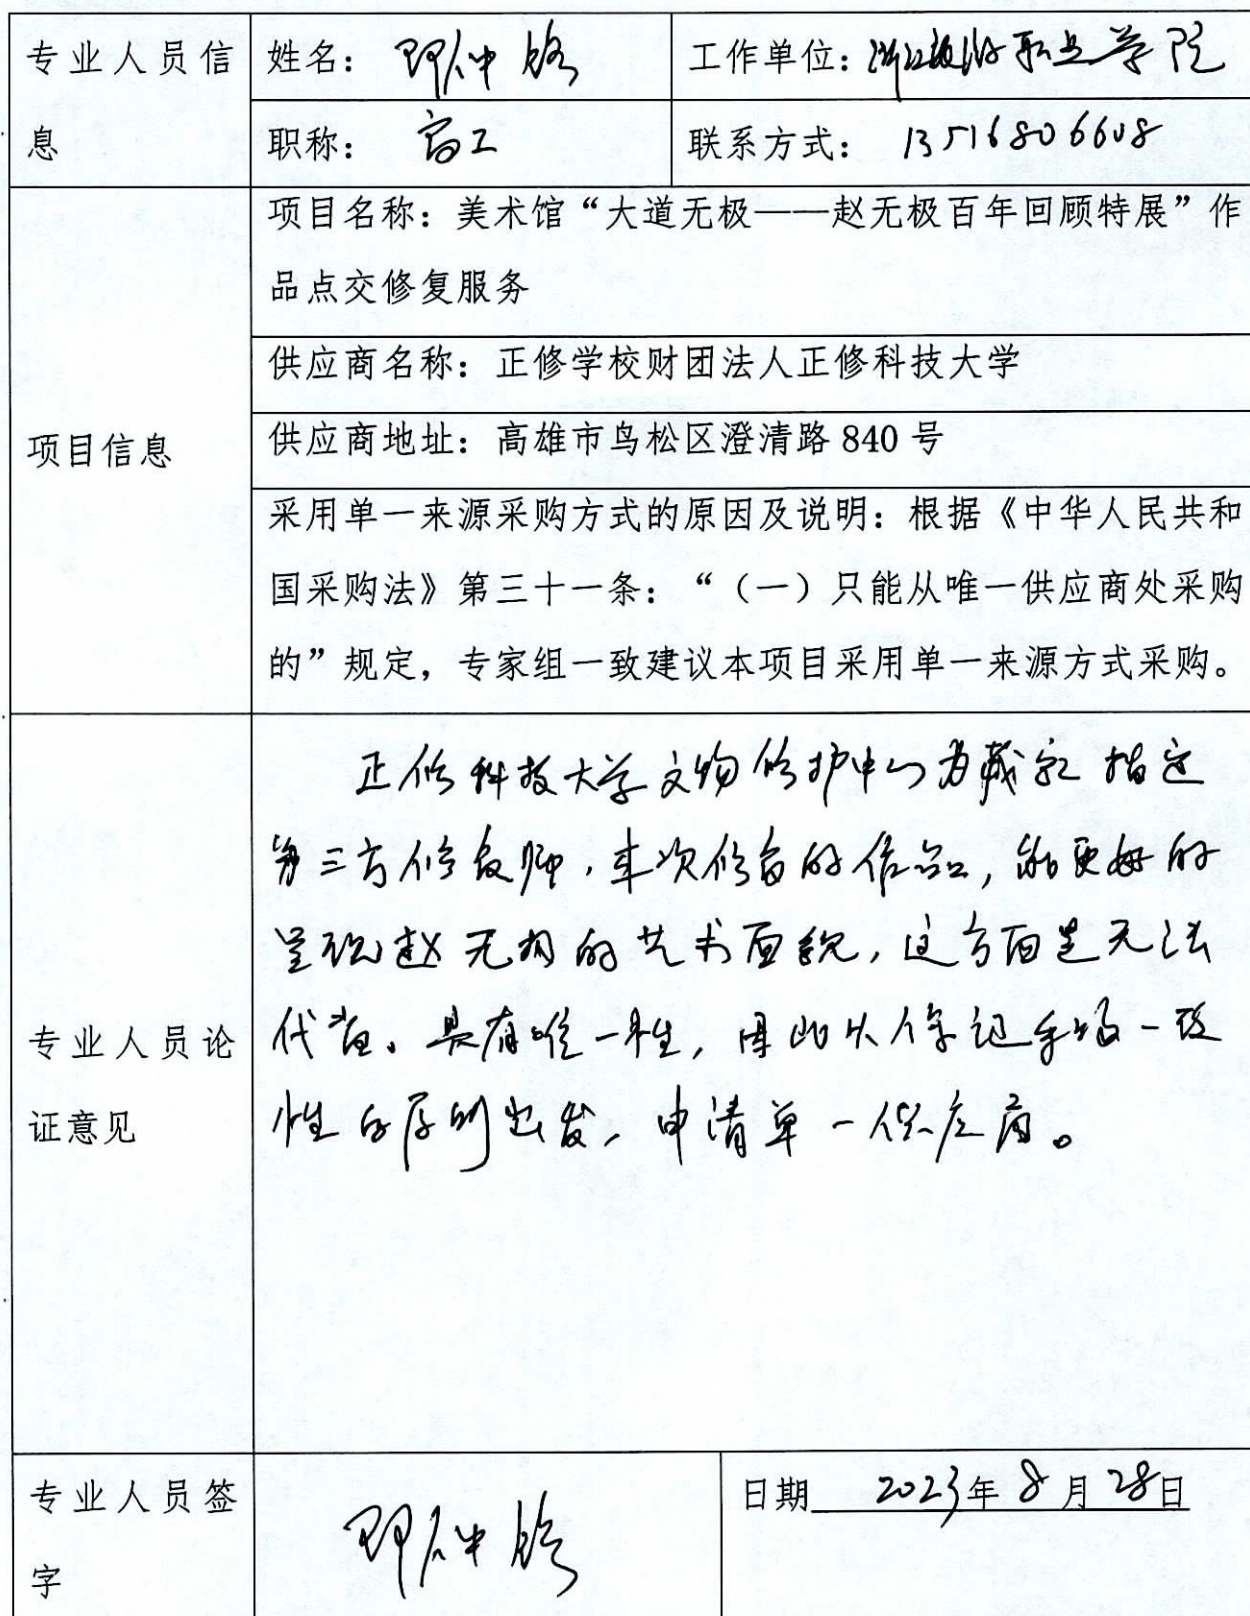 专业人员信息
姓名：
工作单位：浙江旅游职业学院
职称：高工
联系方式：13516806608
项目信息
项目名称：美术馆“大道无极——赵无极百年回顾特展”作
品点交修复服务
供应商名称：正修学校财团法人正修科技大学
供应商地址：高雄市鸟松区澄清路 840 号
采用单一来源采购方式的原因及说明：根据《中华人民共和
国采购法》第三十一条：“（一）只能从唯一供应商处采购
的”规定，专家组一致建议本项目采用单一来源方式采购。
专业人员论
证意见
正修科技大学文物修护中心为藏家指定
第三方修复师，本次修复的作品，能更好的
呈现赵无极的艺术面貌，这方面是无法
代替。具有唯一性，因此从保证手法一致
性的原则出发，申请单一供应商。
专业人员签
字
日期 2023年8月28日